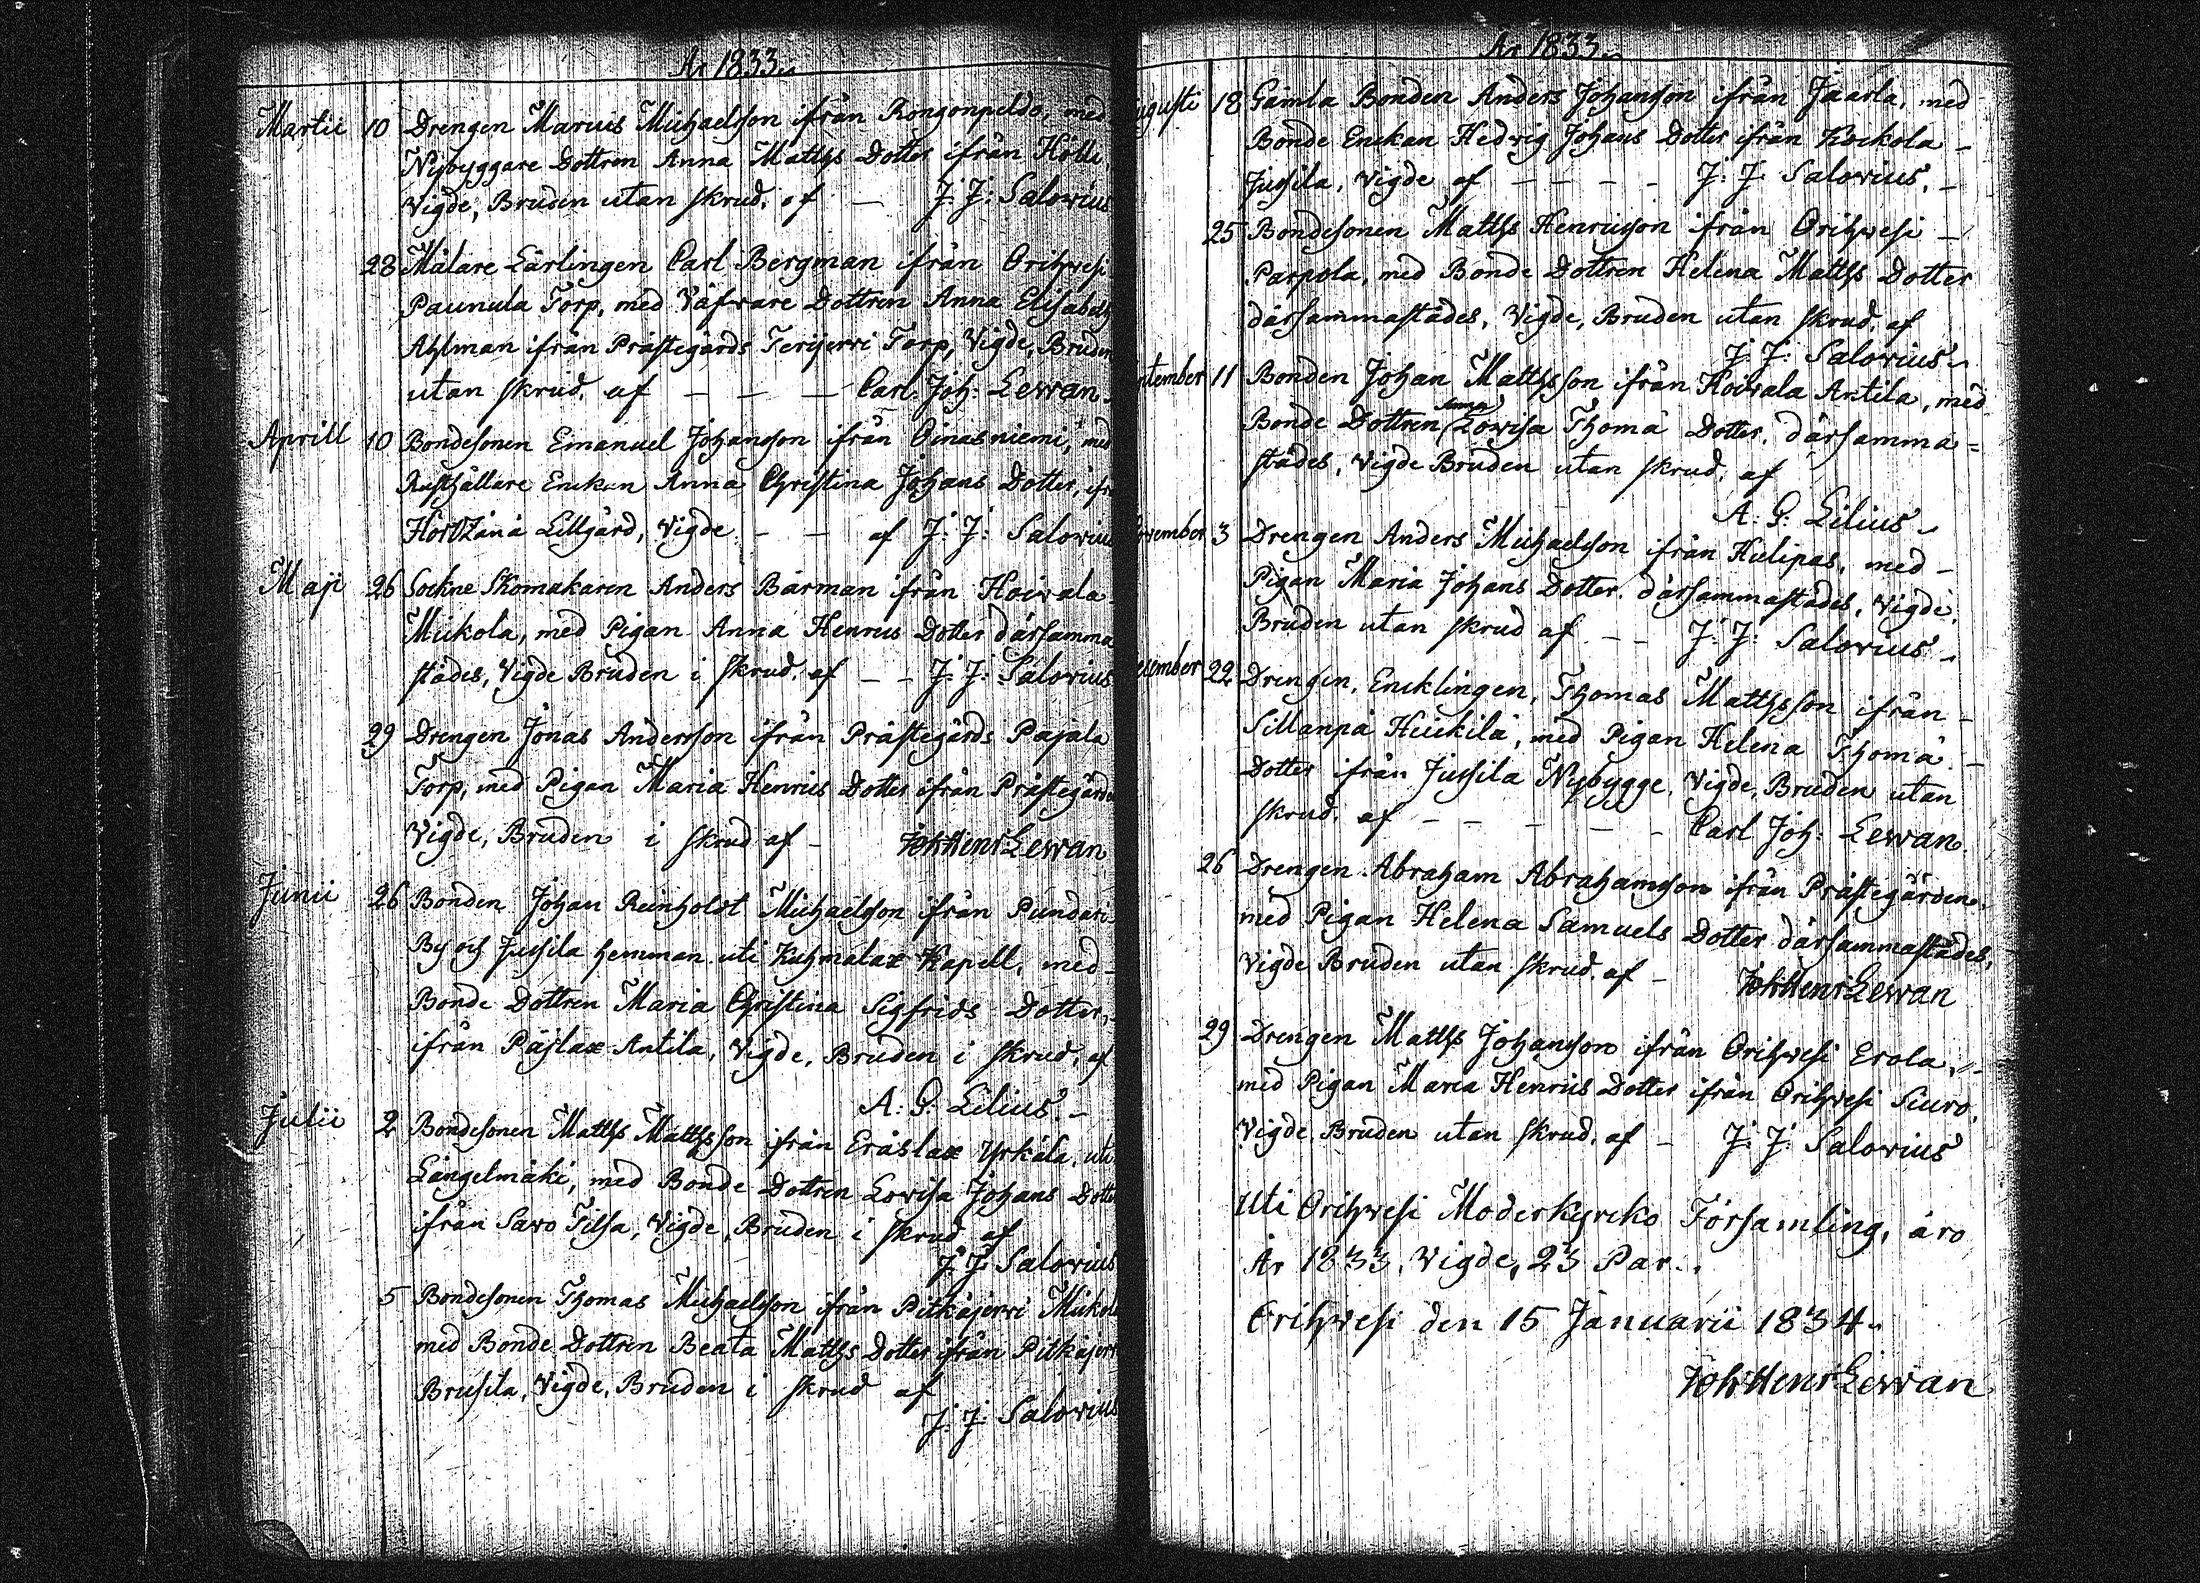 År 1833.
Martii 10 Drengen Marcus Michaelsson ifrån Rongonpeldo, med
Nybyggare Dottren Anna Matths Dotter ifrån
Vigde, Bruden utan skrud, af — J: J: Salovius
28 Målare Lärlingen Carl Bergman ifrån Orihvesi
Paunula Torp, med Väfvare Dottren Anna Elisabeth
Ahlman ifrån Prästegårds Terijervi Torp, Vigde, Bruden
utan skrud, af — — — Carl Joh: Lewan.
Aprill 10 Bondesonen Emanuel Johansson ifrån Oinasniemi, med
Rusthållare Enckan Anna Christina Johans Dotter, ifr
Lillgård, Vigde — — af J: J: Salovius
Maji 26 Sockne Skomakaren Anders Bärman ifrån Hoivala
Mickola, med Pigan Anna Henrics Dotter därsamma
städes, Vigde Bruden i skrud, af — — J: J: Salovius
29 Drengen Jonas Andersson ifrån Prästegårds Pajala
Torp, med Pigan Maria Henrics Dotter ifrån Prästegården
Vigde, Bruden i skrud af — Joh Henr Lewan
Junii 26 Bonden Johan Reinholdt Michaelsson ifrån Pundari
By och Jussila hemman uti Kuhmalax Kapell, med
Bonde Dottren Maria Christina Sigfrids Dotter,
ifrån Päjlax Antila, Vigde, Bruden i skrud, af
A: G: Lilius. —
Julii 2 Bondesonen Matths Matthsson ifrån Eräslax Yrkälä, uti
Längelmäki, med Bonde Dottren Lovisa Johans Dotter
ifrån Savo Tilsa, Vigde, Bruden i skrud af
J: J: Salovius
5 Bondesonen Thomas Michaelsson ifrån Pitkäjervi Mickola
med Bonde Dottren Beata Matths Dotter ifrån Pitkäjerv
Brusila, Vigde, Bruden i skrud af
J: J: Salovius
År 1833.
ugusti 18 Gamla Bonden Anders Johansson ifrån Jaarla, med
Bonde Enckan Hedvig Johans Dotter ifrån Kockola —
Jussila, Vigde af — — — — J: J: Salovius. —
25 Bondesonen Matths Henricsson ifrån Orihvesi —
Parpola, med Bonde Dottren Helena Matths Dotter
därsammastädes, Vigde, Bruden utan skrud, af
J: J: Salovius.
ptember 11 Bonden Johan Matthsson ifrån Hoivala Antila, med
Anna
Bonde Dottren Lovisa Thoma Dotter, därsamma=
städes, Vigde Bruden utan skrud, af
A: G: Lilius.
ovember 3 Drengen Anders Michaelsson ifrån Hulipas, med —
Pigan Maria Johans Dotter, därsammastädes, Vigde,
Bruden utan skrud af — — J: J: Salovius. —
ecember 22 Drengen, Encklingen, Thomas Matthsson ifrån —
Sillanpä Heickilä, med Pigan Helena Thoma —
Dotter ifrån Jussila Nybygge, Vigde, Bruden utan
skrud, af — — — — — — Carl Joh: Lewan.
26 Drengen Abraham Abrahamsson ifrån Prästegården,
med Pigan Helena Samuels Dotter därsammastädes,
Vigde Bruden utan skrud, af — Joh Henr Lewan
29 Drengen Matths Johansson ifrån Orihvesi Erola, —
med Pigan Maria Henrics Dotter ifrån Orihvesi Siuro,
Vigde, Bruden utan skrud, af — J: J: Salovius
Uti Orihvesi Moderkyrko Församling, äro
År 1833, Vigde, 23 Par.
Orihvesi den 15 Januarii 1834.
Joh Henr Lewan